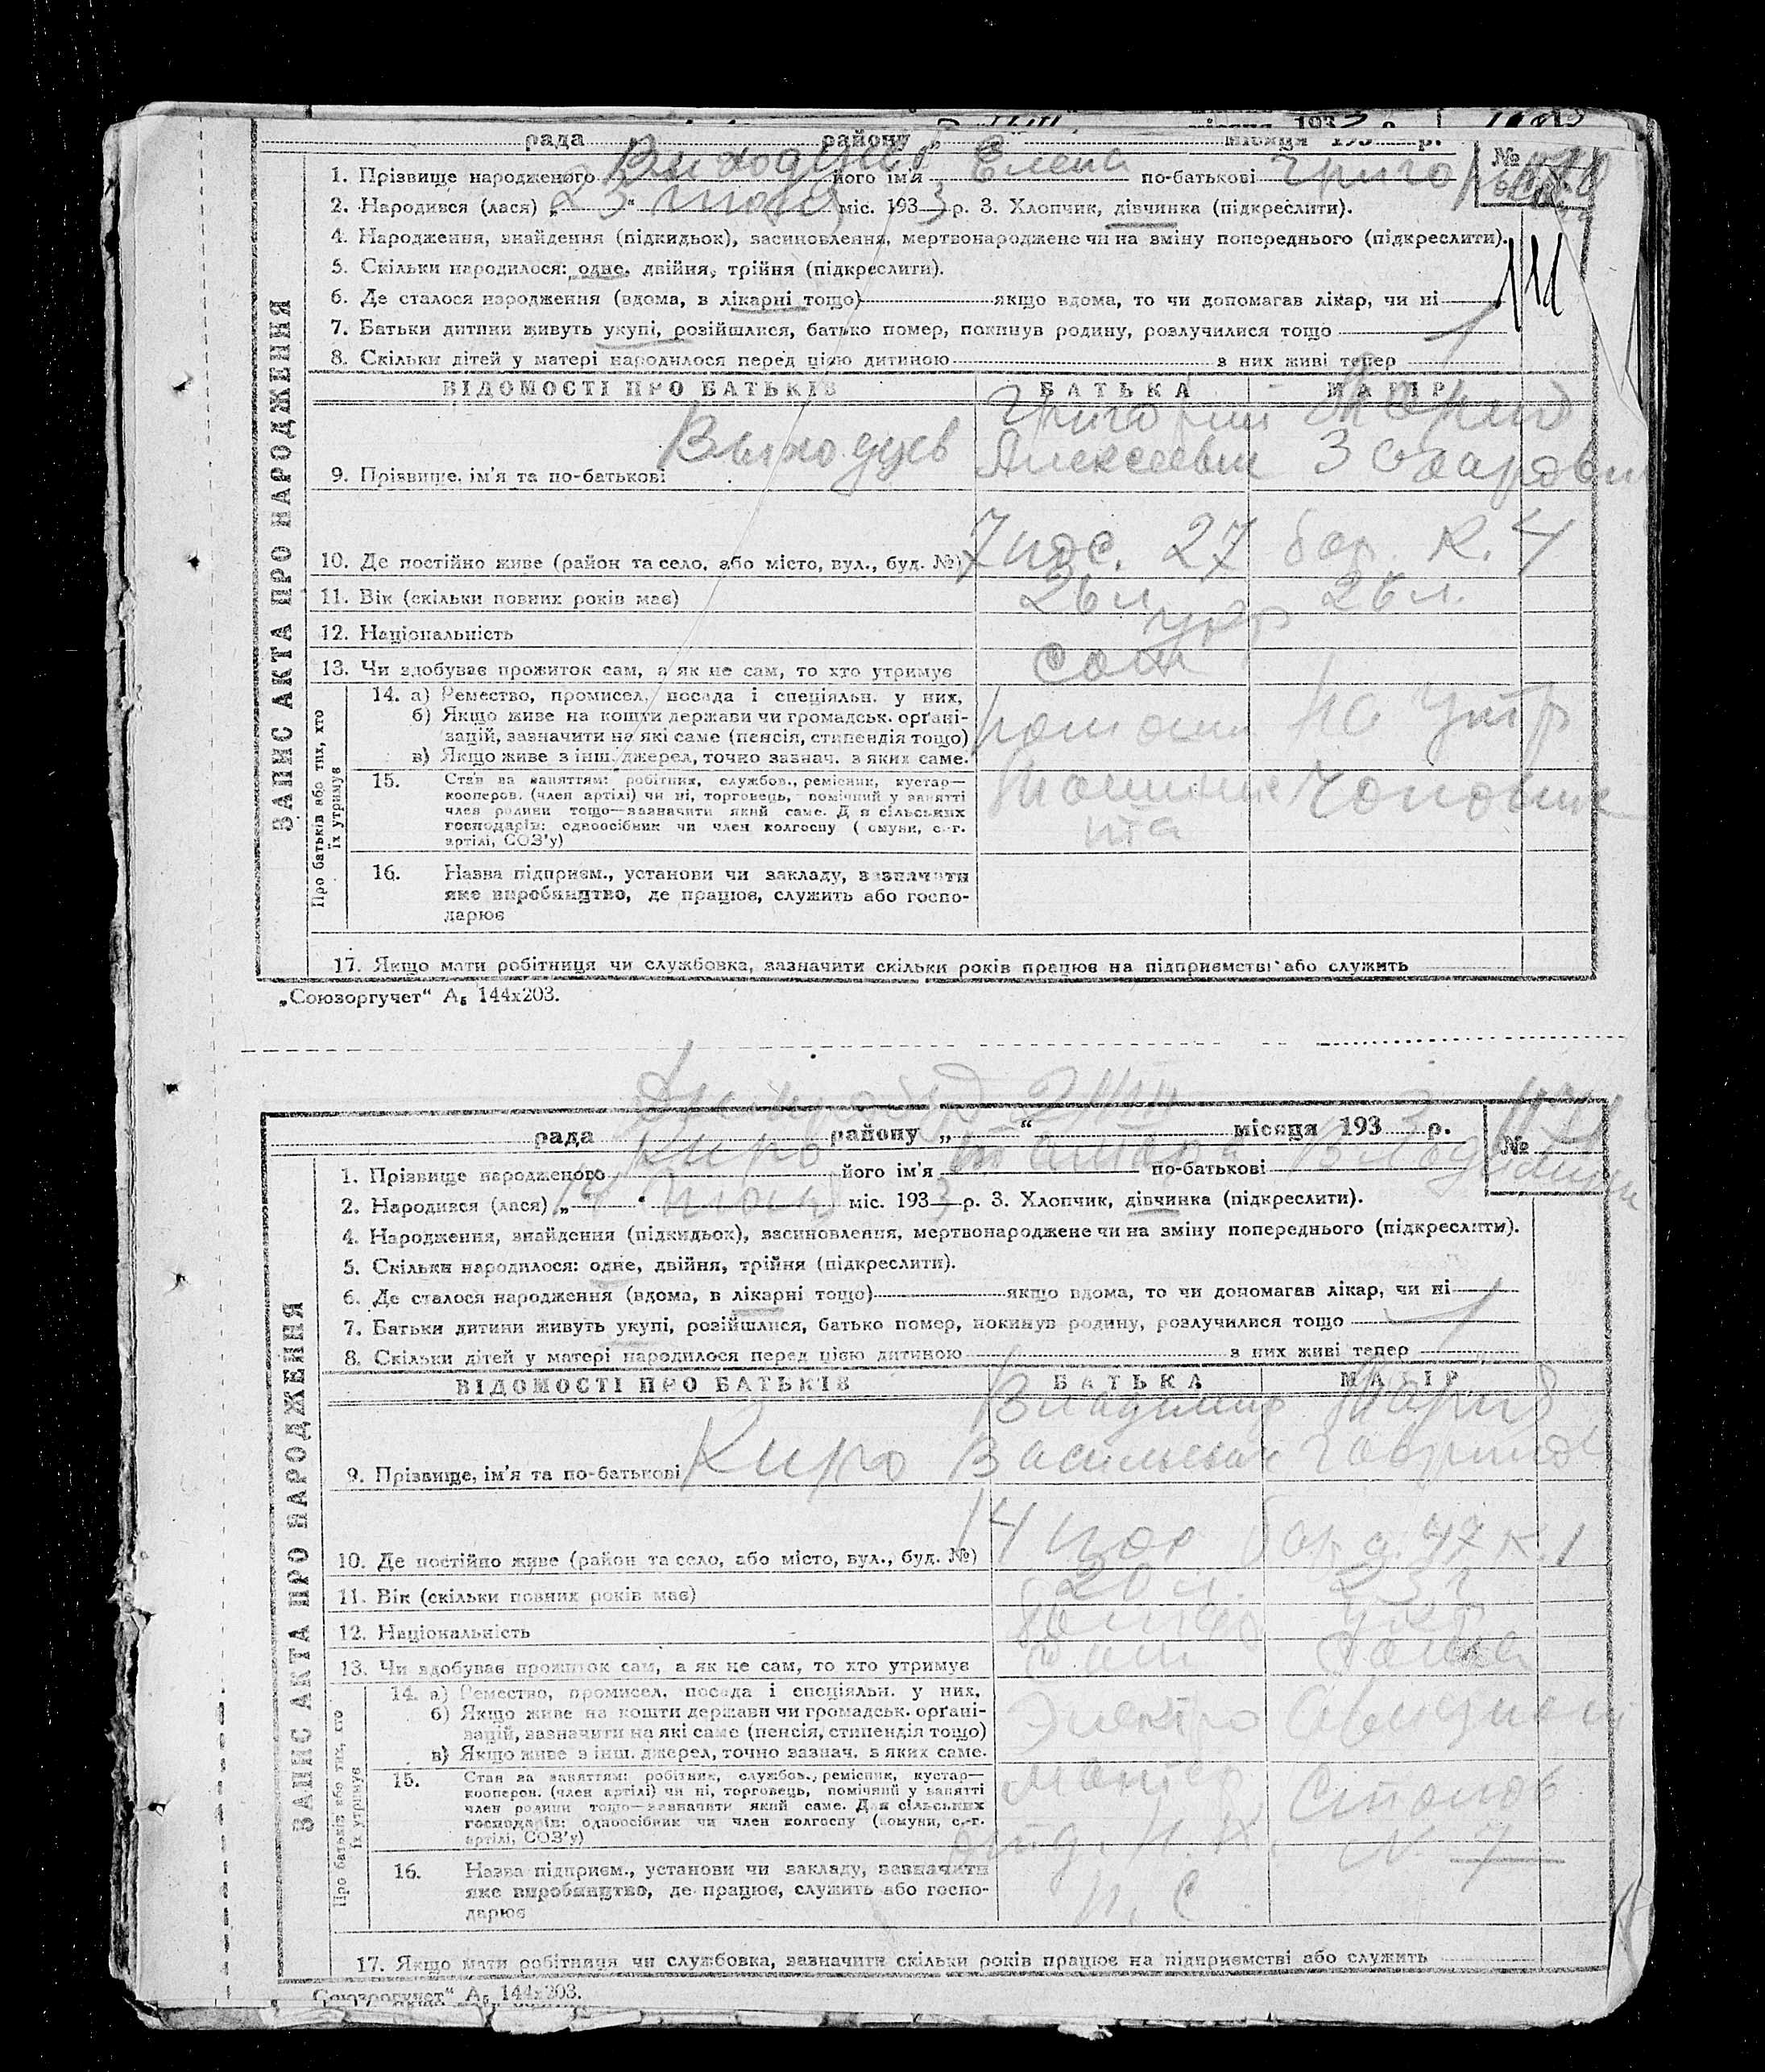 рада району „ “ місяця 193 р.
№
1. Прізвище народженого Выходцев його ім'я Елена по-батькові Григор
2. Народився (лася) „23“ июня міс. 1933 р. 3. Хлопчик, дівчинка (підкреслити).
4. Народження, знайдення (підкидьок), засиновлення, мертвонароджене чи на зміну попереднього (підкреслити).
5. Скільки народилося: одне, двійня, трійня (підкреслити).
6. Де сталося народження (вдома, в лікарні тощо) якщо вдома, то чи допомагав лікар, чи ні
7. Батьки дитини живуть укупі, розійшлися, батько помер, покинув родину, розлучилися тощо
8. Скільки дітей у матері народилося перед цією дитиною з них живі тепер
ЗАПИС АКТА ПРО НАРОДЖЕННЯ
ВІДОМОСТІ ПРО БАТЬКІВ БАТЬКА МАТІР
Григории Мария
9. Прізвище, ім'я та по-батькові Выходцев Алексеевич
10. Де постійно живе (район та село, або місто, вул., буд. №) 7 пос. 27 бар. к. 4
11. Вік (скільки повних років має) 26 л. 26 л.
12. Національність укр
13. Чи здобуває прожиток сам, а як не сам, то хто утримує сам
Про батьків або тих, хто їх утримує
14. а) Ремество, промисел, посада і спеціяльн. у них,
б) Якщо живе на кошти держави чи громадськ. орґані-
зацій, зазначити на які саме (пенсія, стипендія тощо)
в) Якщо живе з інш. джерел, точно зазнач. з яких саме.
15. Стан за заняттям: робітник, службов., ремісник, кустар—
кооперов. (член артілі) чи ні, торговець, помічний у занятті
член родини тощо—зазначити який саме. Для сільських
господарів: одноосібник чи член колгоспу (комуни, с.-г.
артілі, СОЗ'у)
16. Назва підприєм., установи чи закладу, зазначити
яке виробництво, де працює, служить або госпо-
дарює
17. Якщо мати робітниця чи службовка, зазначити скільки років працює на підприємстві або служить
„Союзоргучет“ А₅ 144х203.
рада району „ “ місяця 1933 р.
№
1. Прізвище народженого Киро його ім'я Тамара по-батькові Владимир
2. Народився (лася) „14“ июня міс. 1933 р. 3. Хлопчик, дівчинка (підкреслити).
4. Народження, знайдення (підкидьок), засиновлення, мертвонароджене чи на зміну попереднього (підкреслити).
5. Скільки народилося: одне, двійня, трійня (підкреслити).
6. Де сталося народження (вдома, в лікарні тощо) якщо вдома, то чи допомагав лікар, чи ні
7. Батьки дитини живуть укупі, розійшлися, батько помер, покинув родину, розлучилися тощо
8. Скільки дітей у матері народилося перед цією дитиною з них живі тепер
ЗАПИС АКТА ПРО НАРОДЖЕННЯ
ВІДОМОСТІ ПРО БАТЬКІВ БАТЬКА МАТІР
Владимир Мария
9. Прізвище, ім'я та по-батькові Киро Васильевич Гаврилов
10. Де постійно живе (район та село, або місто, вул., буд. №) 14 пос бар. д. 47 к. 1
11. Вік (скільки повних років має)
12. Національність укр
13. Чи здобуває прожиток сам, а як не сам, то хто утримує сам сама
Про батьків або тих, хто їх утримує
14. а) Ремество, промисел, посада і спеціяльн. у них,
б) Якщо живе на кошти держави чи громадськ. орґані-
зацій, зазначити на які саме (пенсія, стипендія тощо)
в) Якщо живе з інш. джерел, точно зазнач. з яких саме.
Электро
15. Стан за заняттям: робітник, службов., ремісник, кустар—
кооперов. (член артілі) чи ні, торговець, помічний у занятті
член родини тощо—зазначити який саме. Для сільських
господарів: одноосібник чи член колгоспу (комуни, с.-г.
артілі, СОЗ'у)
Монтер Столов
N. 7
16. Назва підприєм., установи чи закладу, зазначити
яке виробництво, де працює, служить або госпо-
дарює
17. Якщо мати робітниця чи службовка, зазначити скільки років працює на підприємстві або служить
Союзоргучет“ А₅ 144х203.